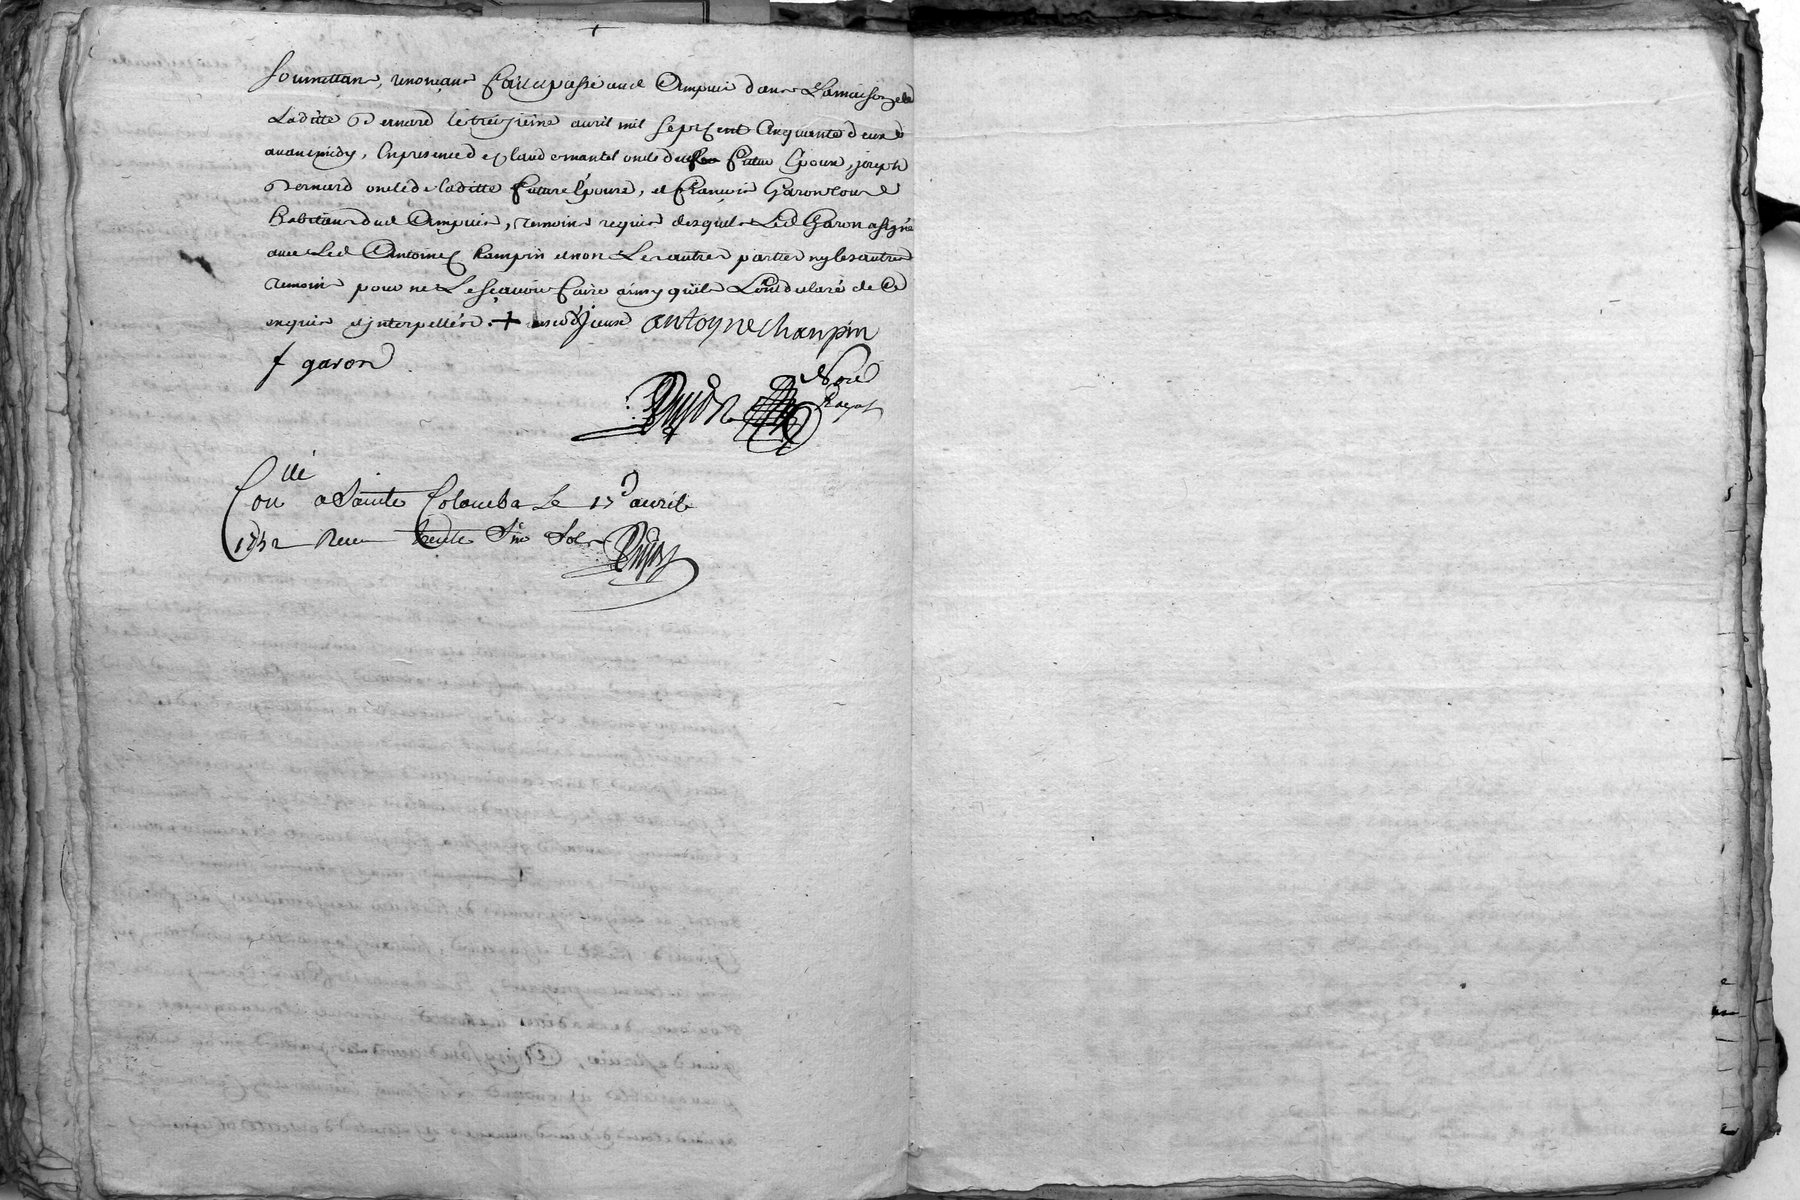 soumettant, renonçant fait et passé aud Ampuis dans La maison de
Laditte Bernard le treizieme avril mil sept cent cinquante deux
avant midy, En presence de Claude mantel oncle dud futur Epoux, joseph
Bernard oncle de laditte future Epouse, et François Garon tous
habitans dud Ampuis, temoins requis desquels Led Garon a signé
avec Led Antoine Champin et non Les autres parties ny les autres
temoins pour ne Le sçavoir faire ainsy qu'ils L'ont declaré de ce
enquis et interpellés. + antoyne Champin
f garon
Coné a Sainte Colombe Le 17 avril
1752 Receu trente six sols